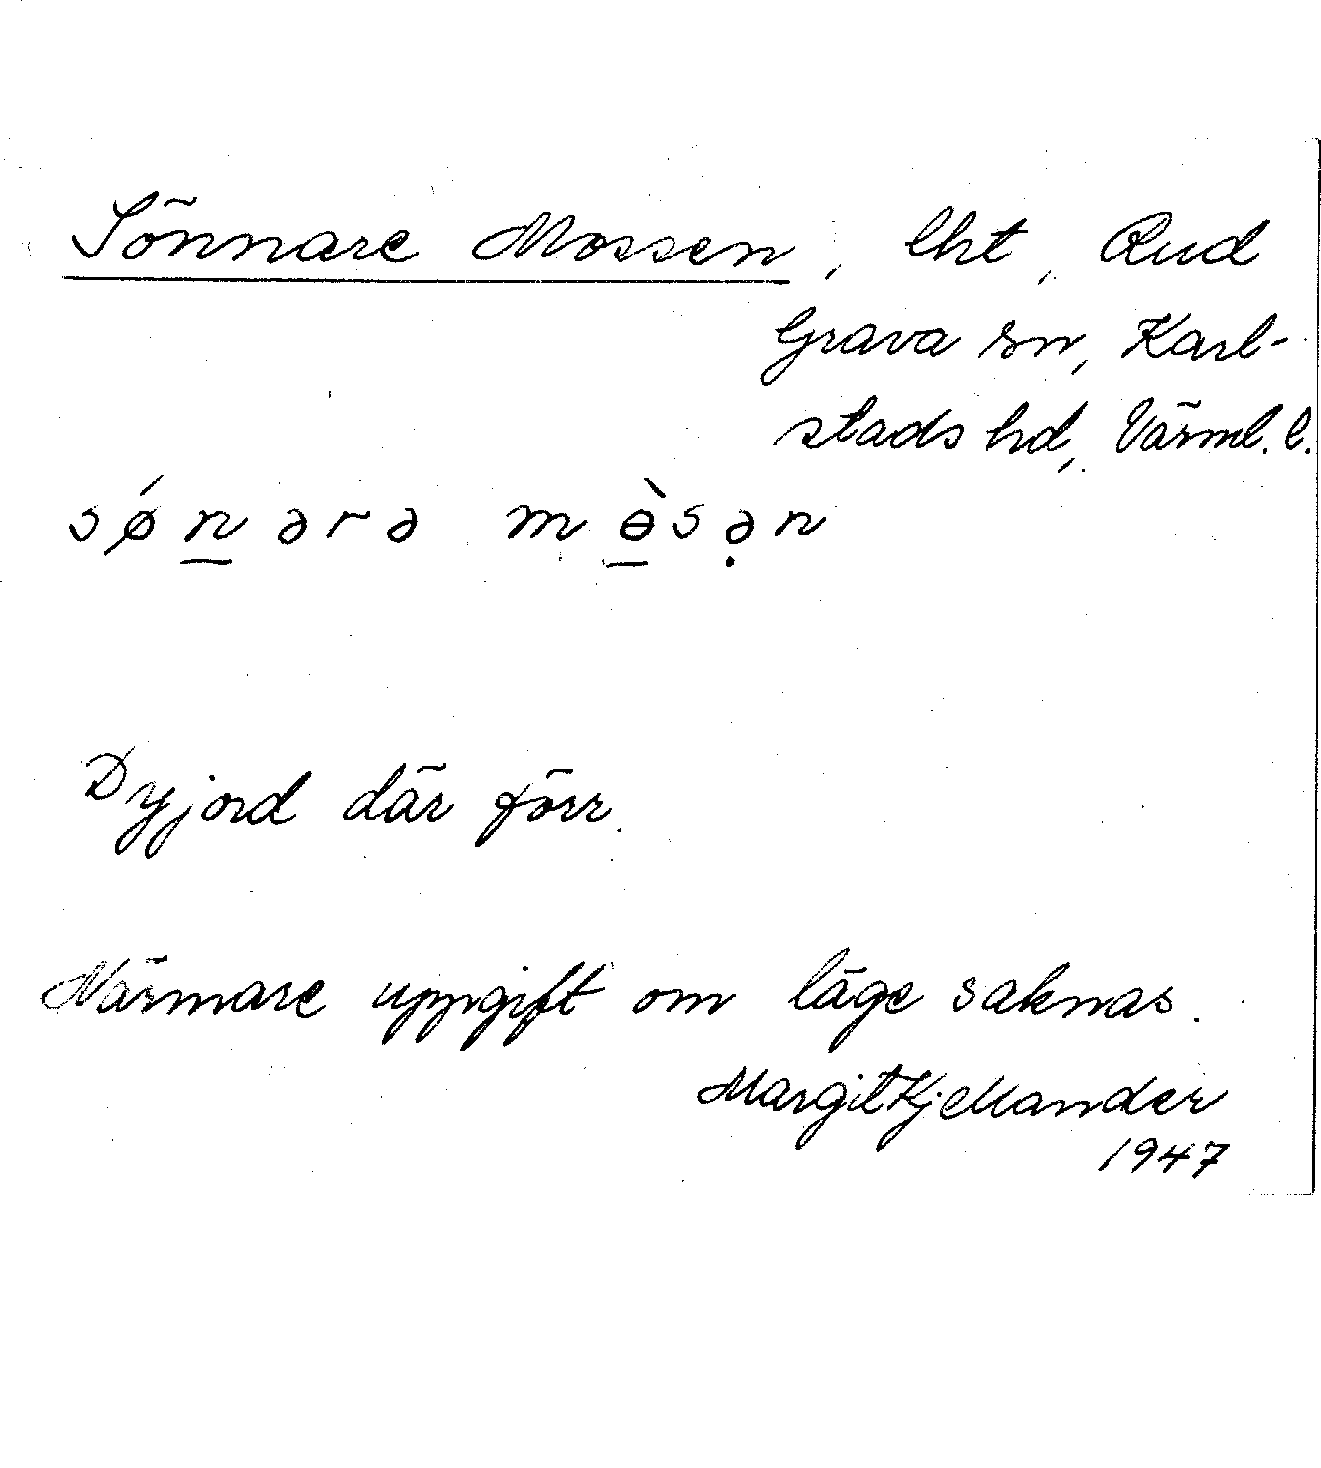 Sönnare Mossen, lht, Rud
Grava sn, Karl-
stads hd, Värml. l.
sǿn̲ərə mɵ̲̀sə̣n
Dyjord där förr.
Närmare uppgift om läge saknas.
Margit Kjellander
1947